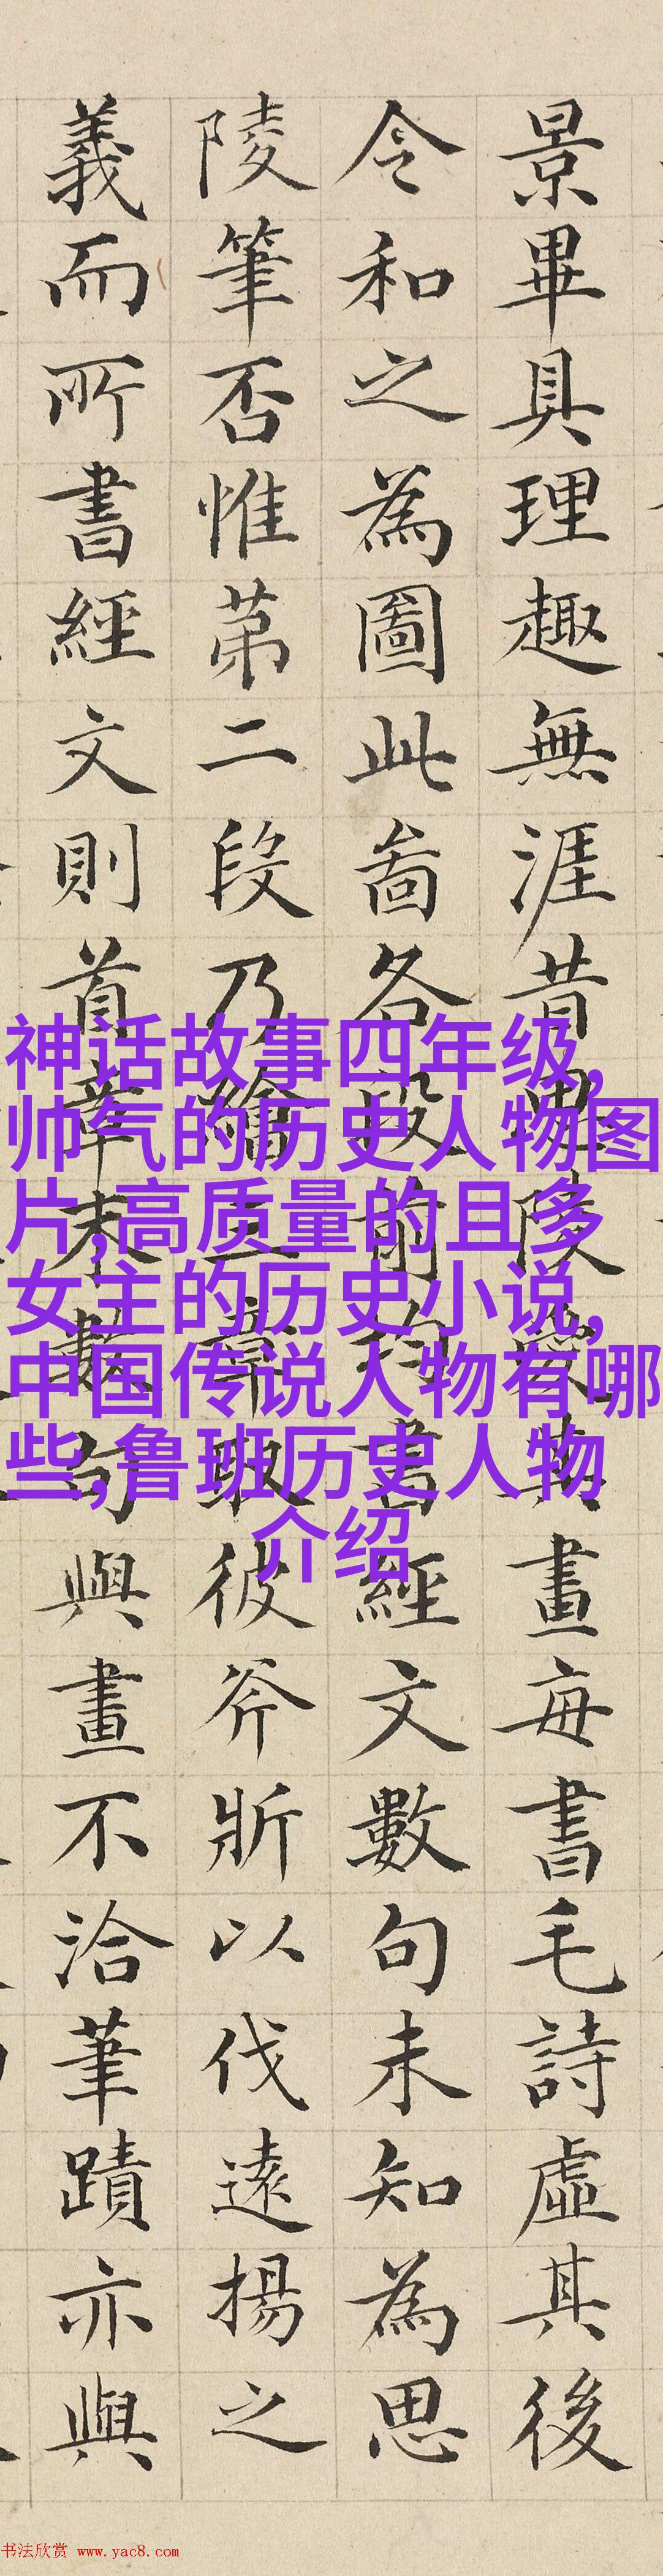 景畢具理趣無涯昔陵其畫每書毛詩虛其後
令和之為圖此啚各段前均書經文數句未知為思
陵筆否惟苐二段乃繪三章取彼斧斨以伐遠揚之
義而所書經文則首章末數句與畫不洽筆蹟亦與
神话故事四年级,
帅气的历史人物图
片,高质量的且多
女主的历史小说,
中国传说人物有哪
些,鲁班历史人物
介绍
书法欣赏 www.yac8.com